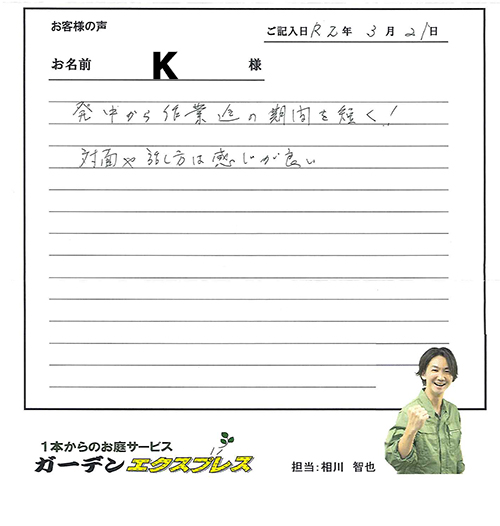 お客様の声
ご記入日 R2年 3月 21日
お名前 K 様
発中から作業迄の期間を短く!
対面や話し方は感じが良い
1本からのお庭サービス
ガーデンエクスプレス
担当:相川 智也